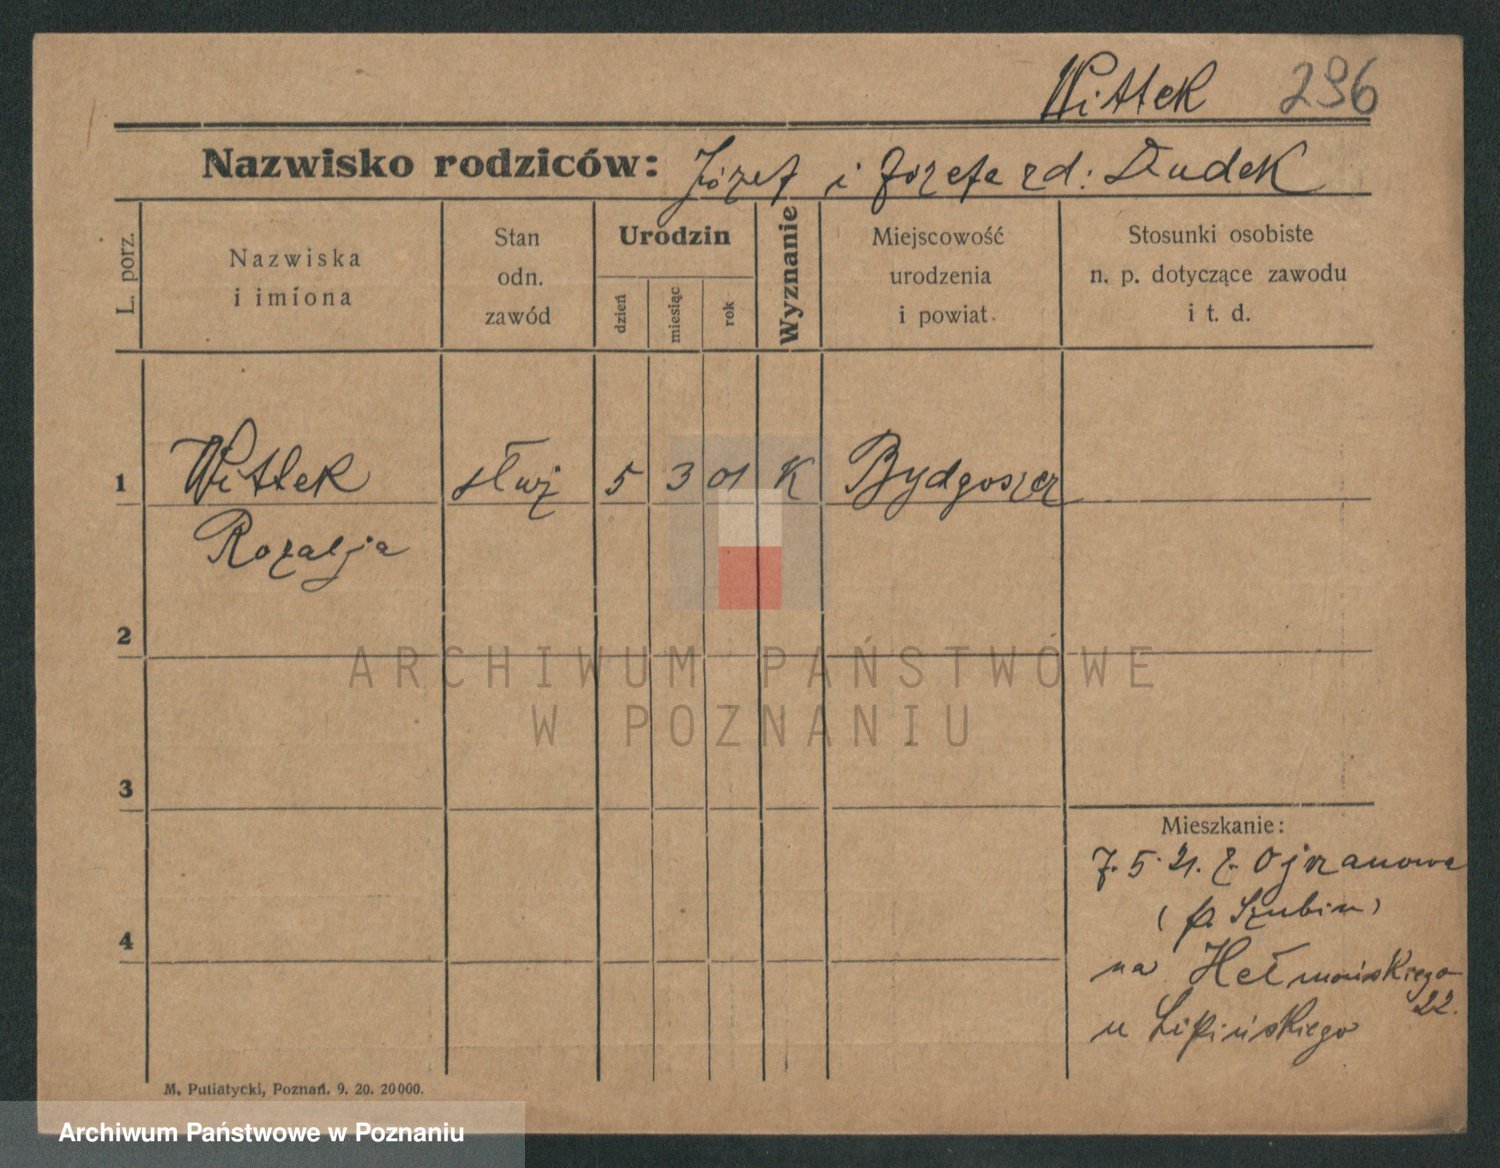 Wittek 296
Nazwisko rodziców: Józef i Józefa zd: Dudek
L. porz.
Nazwiska
i imiona
Stan
odn.
zawód
Urodzin
dzień
miesiąc
rok
Wyznanie
Miejscowość
urodzenia
i powiat
Stosunki osobiste
n. p. dotyczące zawodu
i t. d.
1 Wittek służ 5 3 01 K Bydgoszcz
Rozalja
2
ARCHIWUM PAŃSTWOWE
W POZNANIU
3
Mieszkanie:
7. 5. 21. z
(p. Szubin)
4
na Hełmońskiego
22.
u Lipińskiego
M. Putiatycki, Poznań. 9. 20. 20000.
Archiwum Państwowe w Poznaniu